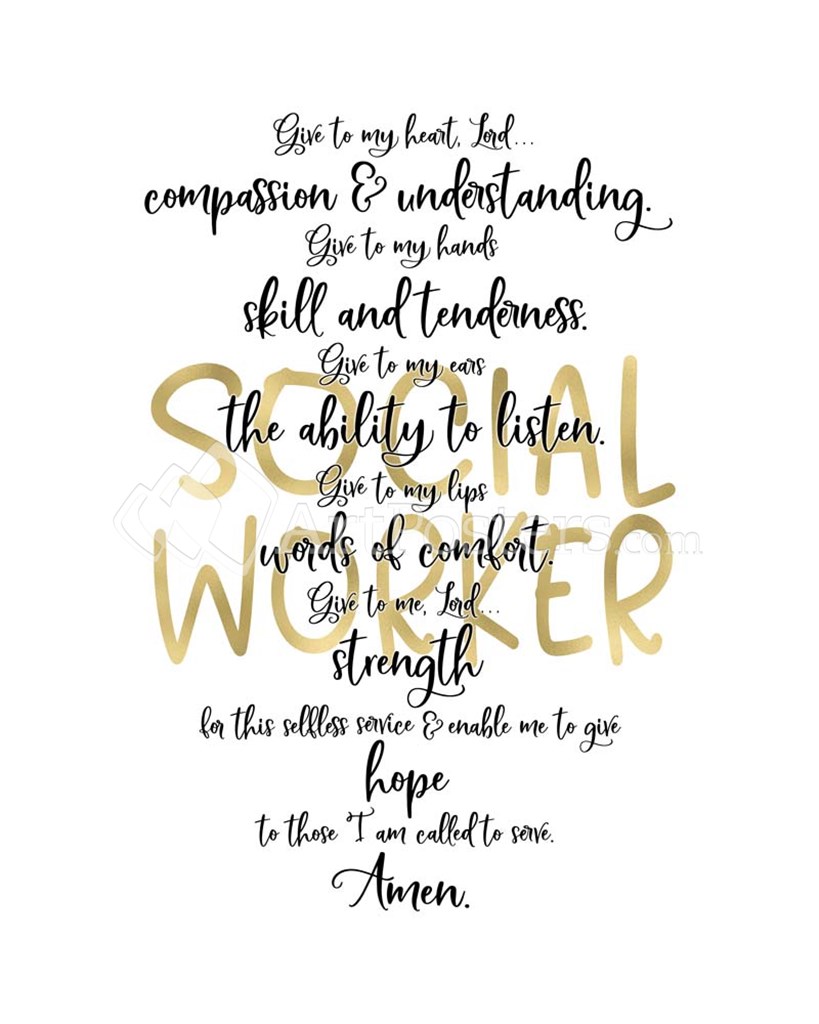 Give to my heart, Lord...
compassion & understanding.
Give to my hands
skill and tenderness.
Give to my ears
SOCIAL
the ability to listen.
Give to my lips
ArtPosters.com
words of comfort.
WORKER
Give to me, Lord...
strength
for this selfless service & enable me to give
hope
to those I am called to serve.
Amen.